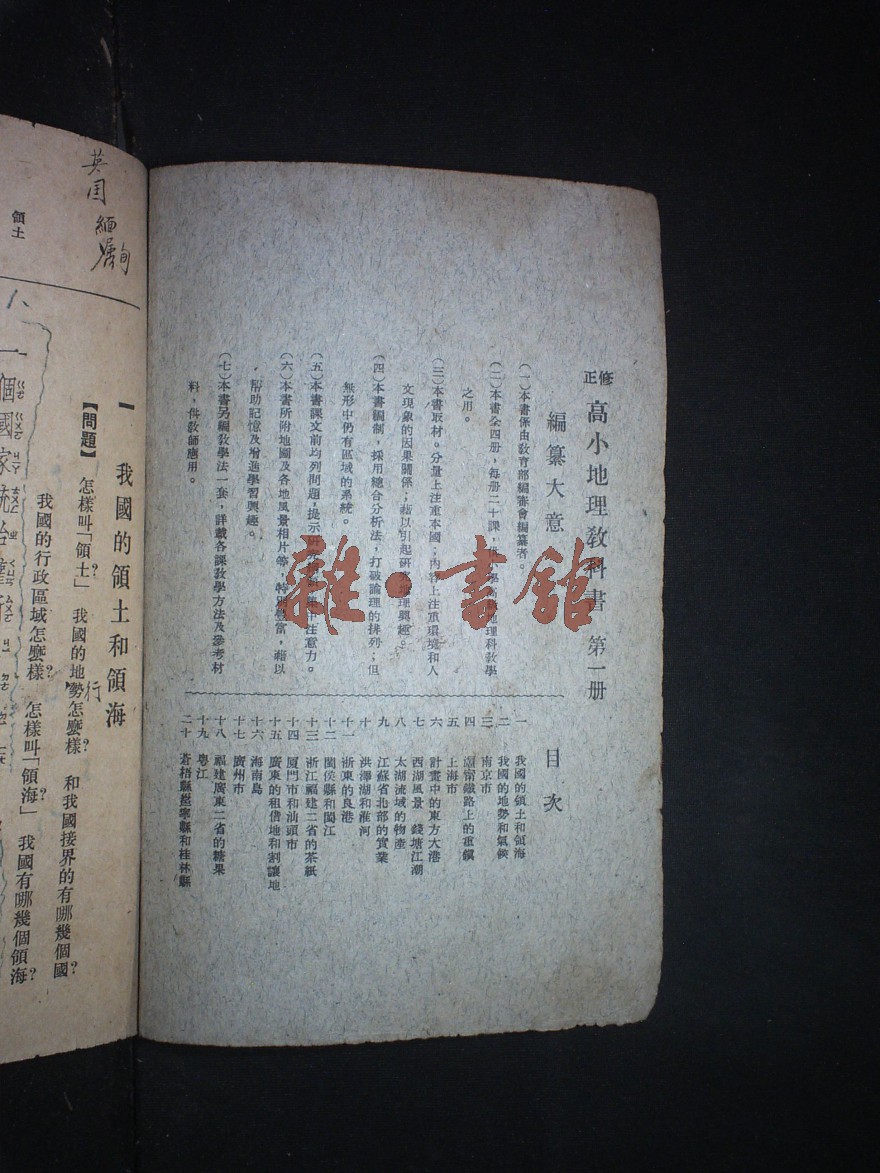 修正 高小地理敎科書 第一册
編纂大意
(一)本書係由敎育部編審會編纂者。
(二)本書全四册，每册二十課，供 學高 地理科敎學
之用。
(三)本書取材。分量上注重本國；內容上注重環境和人
文現象的因果關係；藉以引起研究地理興趣。
(四)本書編制，採用總合分析法，打破論理的排列；但
無形中仍有區域的系統。
(五)本書課文前均列問題，提示研究 集中注意力。
(六)本書所附地圖及各地風景相片等，特別豐富，藉以
幫助記憶及增進學習興趣。
(七)本書另編敎學法一套，詳載各課敎學方法及參考材
料，供敎師應用。
目次
一 我國的領土和領海
二 我國的地勢和氣候
三 南京市
四 鐵路上的重鎭
五 上海市
六 計畫中的東方大港
七 西湖風景 錢塘江潮
八 太湖流域的物產
九 江蘇省北部的實業
十 洪澤湖和淮河
十一 浙東的良港
十二 閩侯縣和閩江
十三 浙江福建二省的茶紙
十四 廈門市和汕頭市
十五 廣東的租借地和割讓地
十六 海南島
十七 廣州市
十八 福建廣東二省的糖果
十九 粵江
二十 蒼梧縣邕寧縣和桂林縣
雜·書館
英国
緬甸
領土
一 我國的領土和領海
【問題】 怎樣叫「領土」？ 我國的地勢怎麼樣？ 和我國接界的有哪幾個國？
行
我國的行政區域怎麼樣？ 怎樣叫「領海」？ 我國有哪幾個領海？
一個國家統治權所